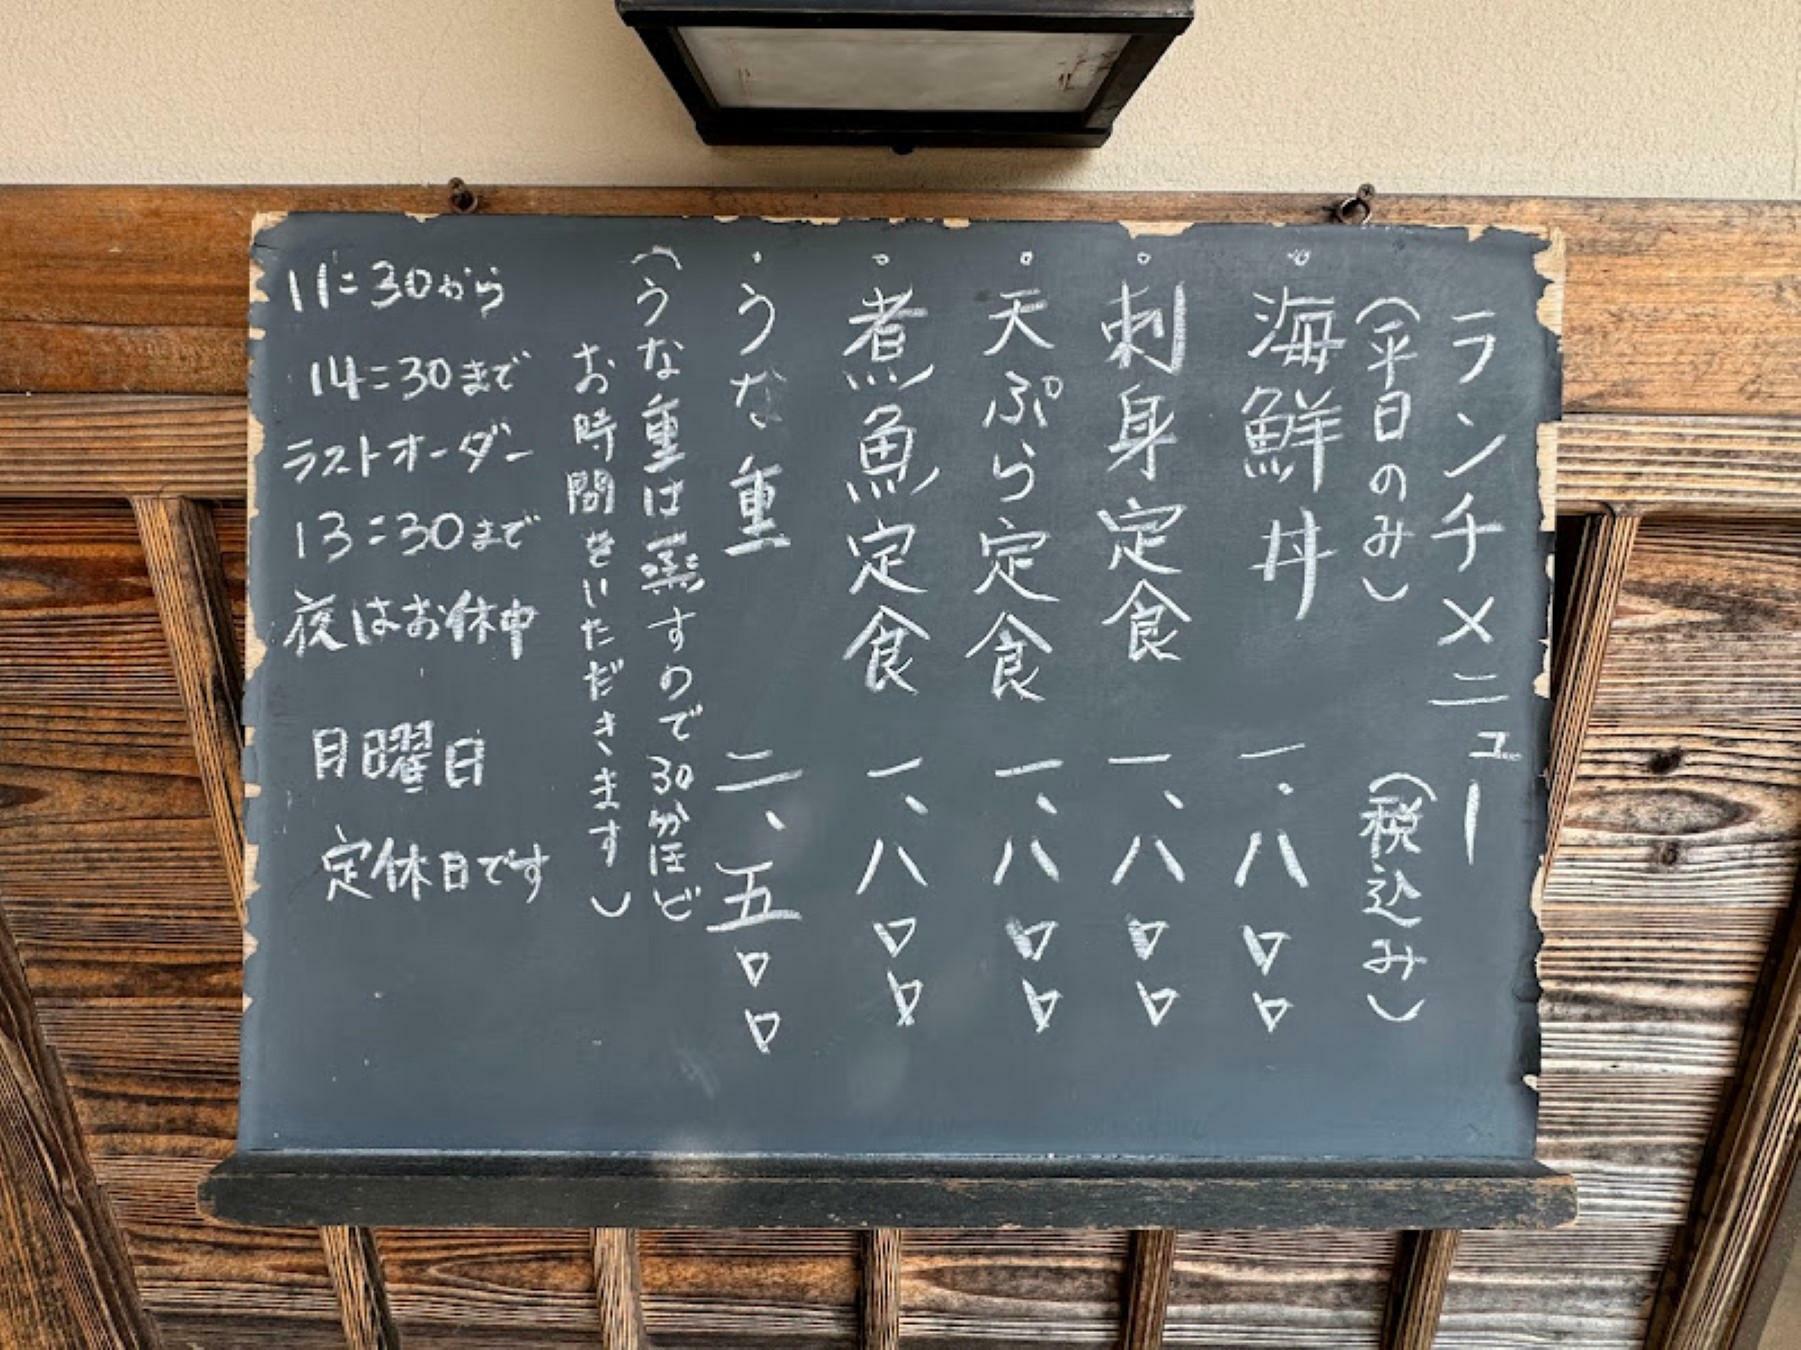 ランチメニュー
（平日のみ）（税込み）
。海鮮丼 一、八〇〇
。刺身定食 一、八〇〇
。天ぷら定食 一、八〇〇
。煮魚定食 一、八〇〇
。うな重 二、五〇〇
（うな重は蒸すので30分ほど
お時間をいただきます）
11:30から
14:30まで
ラストオーダー
13:30まで
夜はお休中
月曜日
定休日です